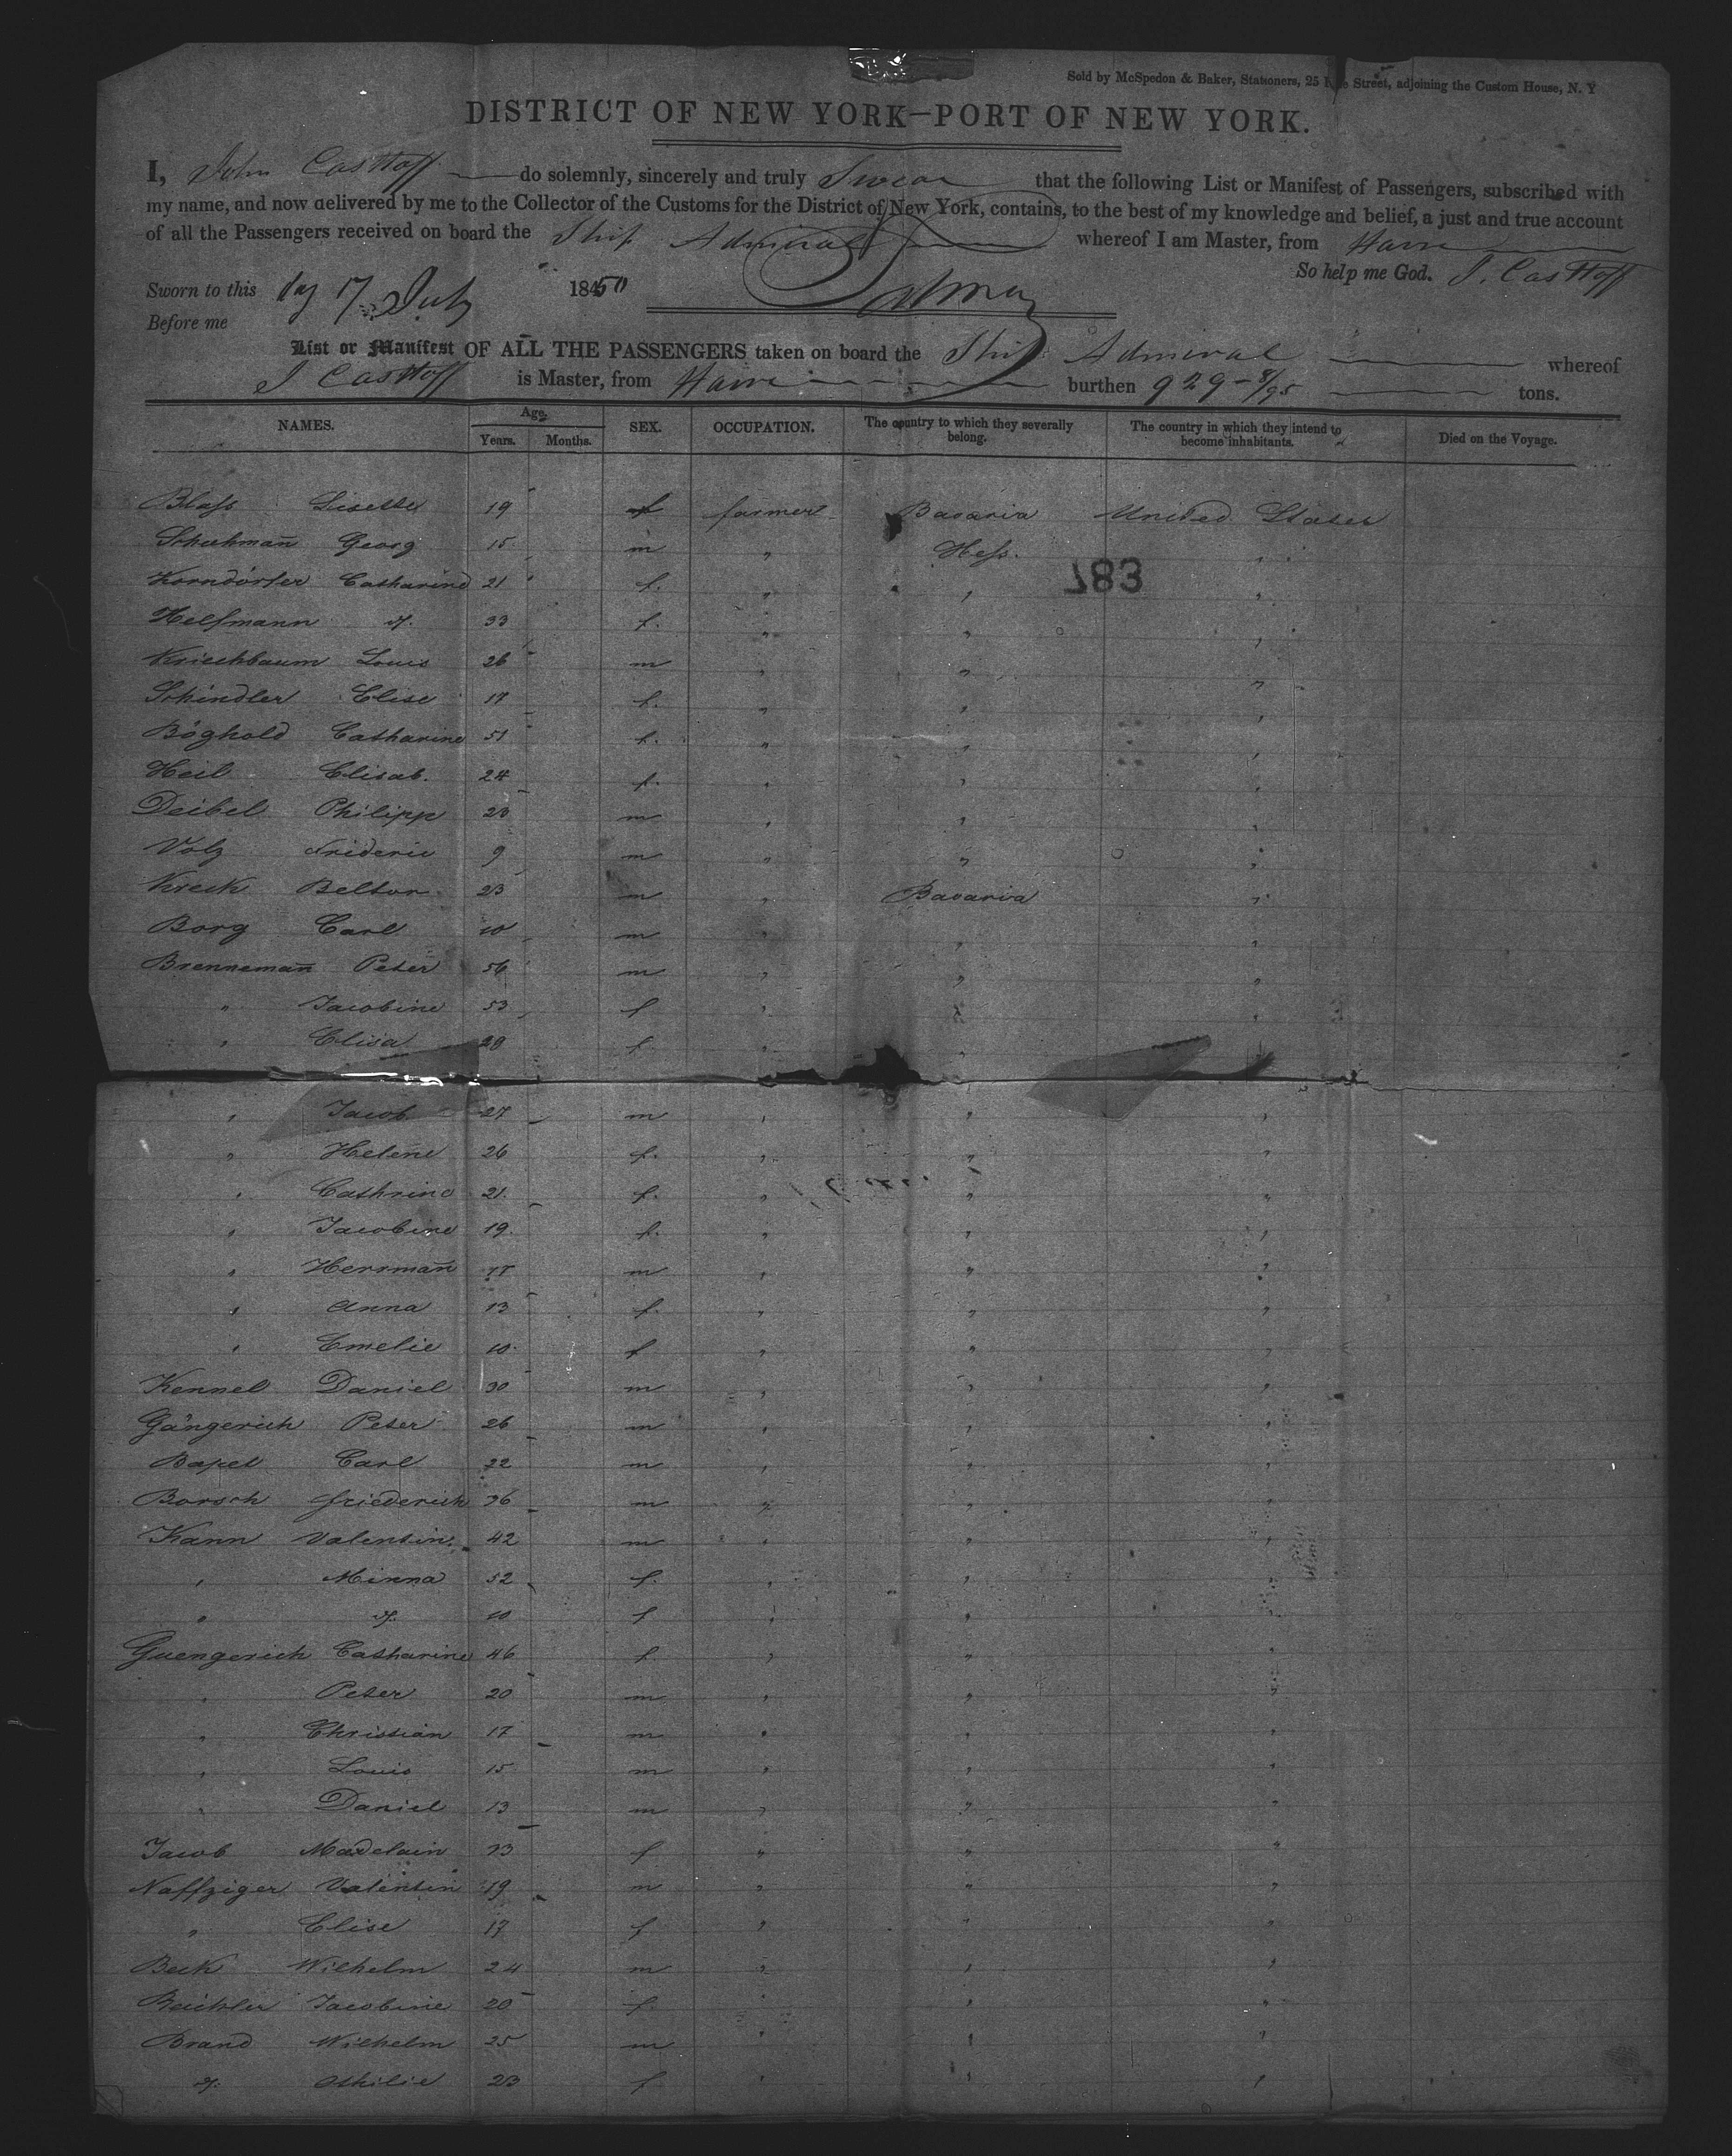 Sold by McSpedon & Baker, Stationers, 25 Pine Street, adjoining the Custom House, N. Y
DISTRICT OF NEW YORK—PORT OF NEW YORK.
I, John Casttoff do solemnly, sincerely and truly Swear that the following List or Manifest of Passengers, subscribed with
my name, and now delivered by me to the Collector of the Customs for the District of New York, contains, to the best of my knowledge and belief, a just and true account
of all the Passengers received on board the Ship Admiral whereof I am Master, from Havre
So help me God. J. Casttoff
Sworn to this 17 July 1850
Before me
List or Manifest OF ALL THE PASSENGERS taken on board the Ship Admiral whereof
J Casttoff is Master, from Havre burthen 929-8/95 tons.
NAMES. Age. SEX. OCCUPATION. The country to which they severally belong. The country in which they intend to become inhabitants. Died on the Voyage.
Years. Months.
Blass Lisette 19 f farmer Bavaria United States
Schuhmañ Georg 15 m " Hess. "
783
Korndörfer Catharine 21 f. " " "
Helfmann " 33 f. " " "
Kriechbaum Louis 26 m " " "
Schindler Elise 17 f. " " "
Böghold Catharine 51 f. " " "
Heil Elisab. 24 f. " " "
Deibel Philipp 23 m " " "
Volz Frideric 9 m " " "
Kreck Beltor 23 m " Bavaria "
Borg Carl 10 m " " "
Brennemañ Peter 56 m " " "
" Jacobine 53 f " " "
" Elisa 28 f. " " "
" Jacob 27 m " " "
" Helene 26 f. " " "
" Cathrine 21. f. " " "
" Jacobine 19. f. " " "
" Hermañ 17 m " " "
" Anna 13 f. " " "
" Emelie 10. f " " "
Kennel Daniel 30 m " " "
Gängerich Peter 26 m " " "
Bapel Carl 22 m " " "
Borsch Friederich 36 m " " "
Kann Valentin. 42 m " " "
" Minna 52 f. " " "
" " 10 f " " "
Guengerich Catharine 46 f " " "
" Peter 20 m " " "
" Christian 17 m " " "
" Louis 15 m " " "
" Daniel 13 m " " "
Jacob Madelain 23 f " " "
Naffziger Valentin 19 m " " "
" Elise 17 f " " "
Beck Wilhelm 24 m " " "
Jacobine 20 f " " "
Brand Wilhelm 25 m " " "
" Othilie 23 f " " "